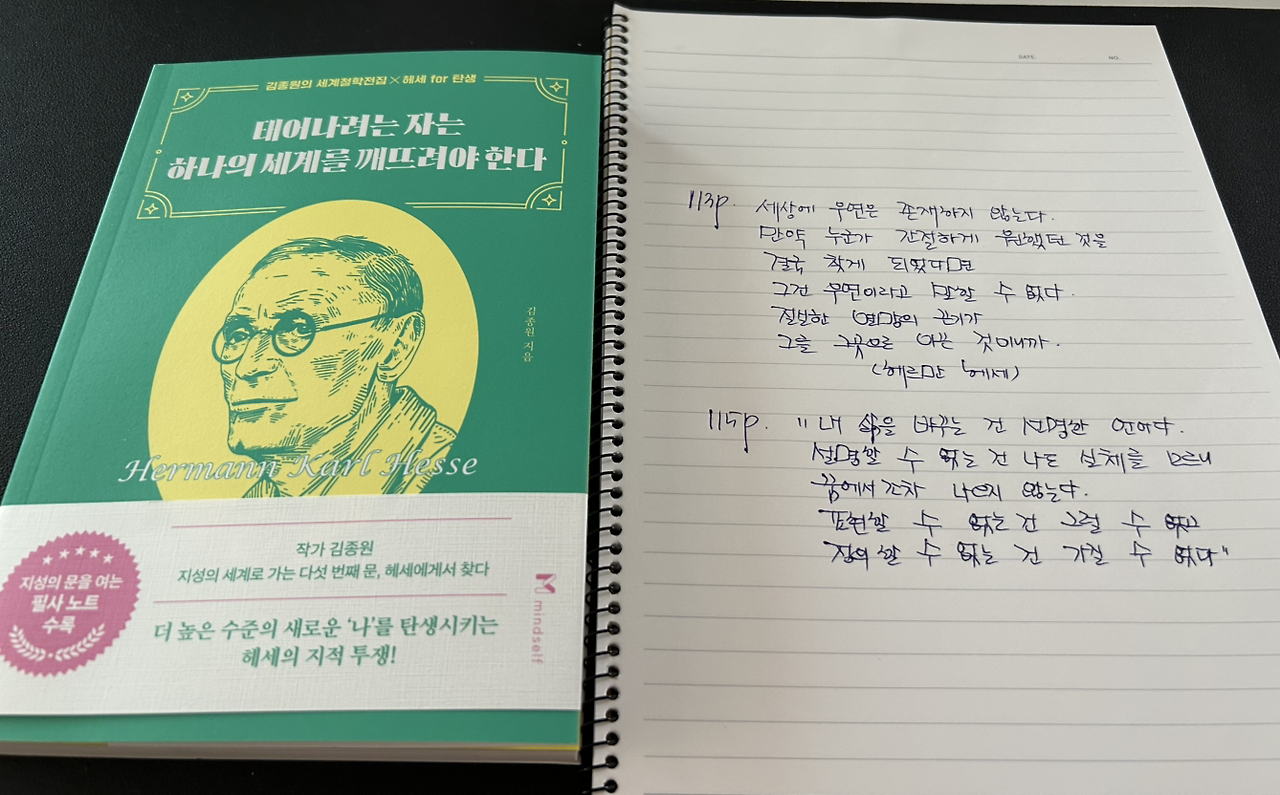 김종원의 세계철학전집 × 헤세 for 탄생
태어나려는 자는
하나의 세계를 깨뜨려야 한다
김종원 지음
Hermann Karl Hesse
지성의 문을 여는
필사 노트
수록
작가 김종원
지성의 세계로 가는 다섯 번째 문, 헤세에게서 찾다
더 높은 수준의 새로운 ‘나’를 탄생시키는
헤세의 지적 투쟁!
mindself
DATE. NO.
113p. 세상에 우연은 존재하지 않는다.
만약 누군가 간절하게 원했던 것을
결국 찾게 되었다면
그건 우연이라고 말할 수 없다.
절실한 열망의 끈기가
그를 그곳으로 이끈 것이니까.
(헤르만 헤세)
115p. "내 삶을 바꾸는 건 선명한 언어다.
설명할 수 없는 건 나도 실체를 모르니
꿈에서조차 나오지 않는다.
표현할 수 없는 건 그릴 수 없고
정의할 수 없는 건 가질 수 없다"